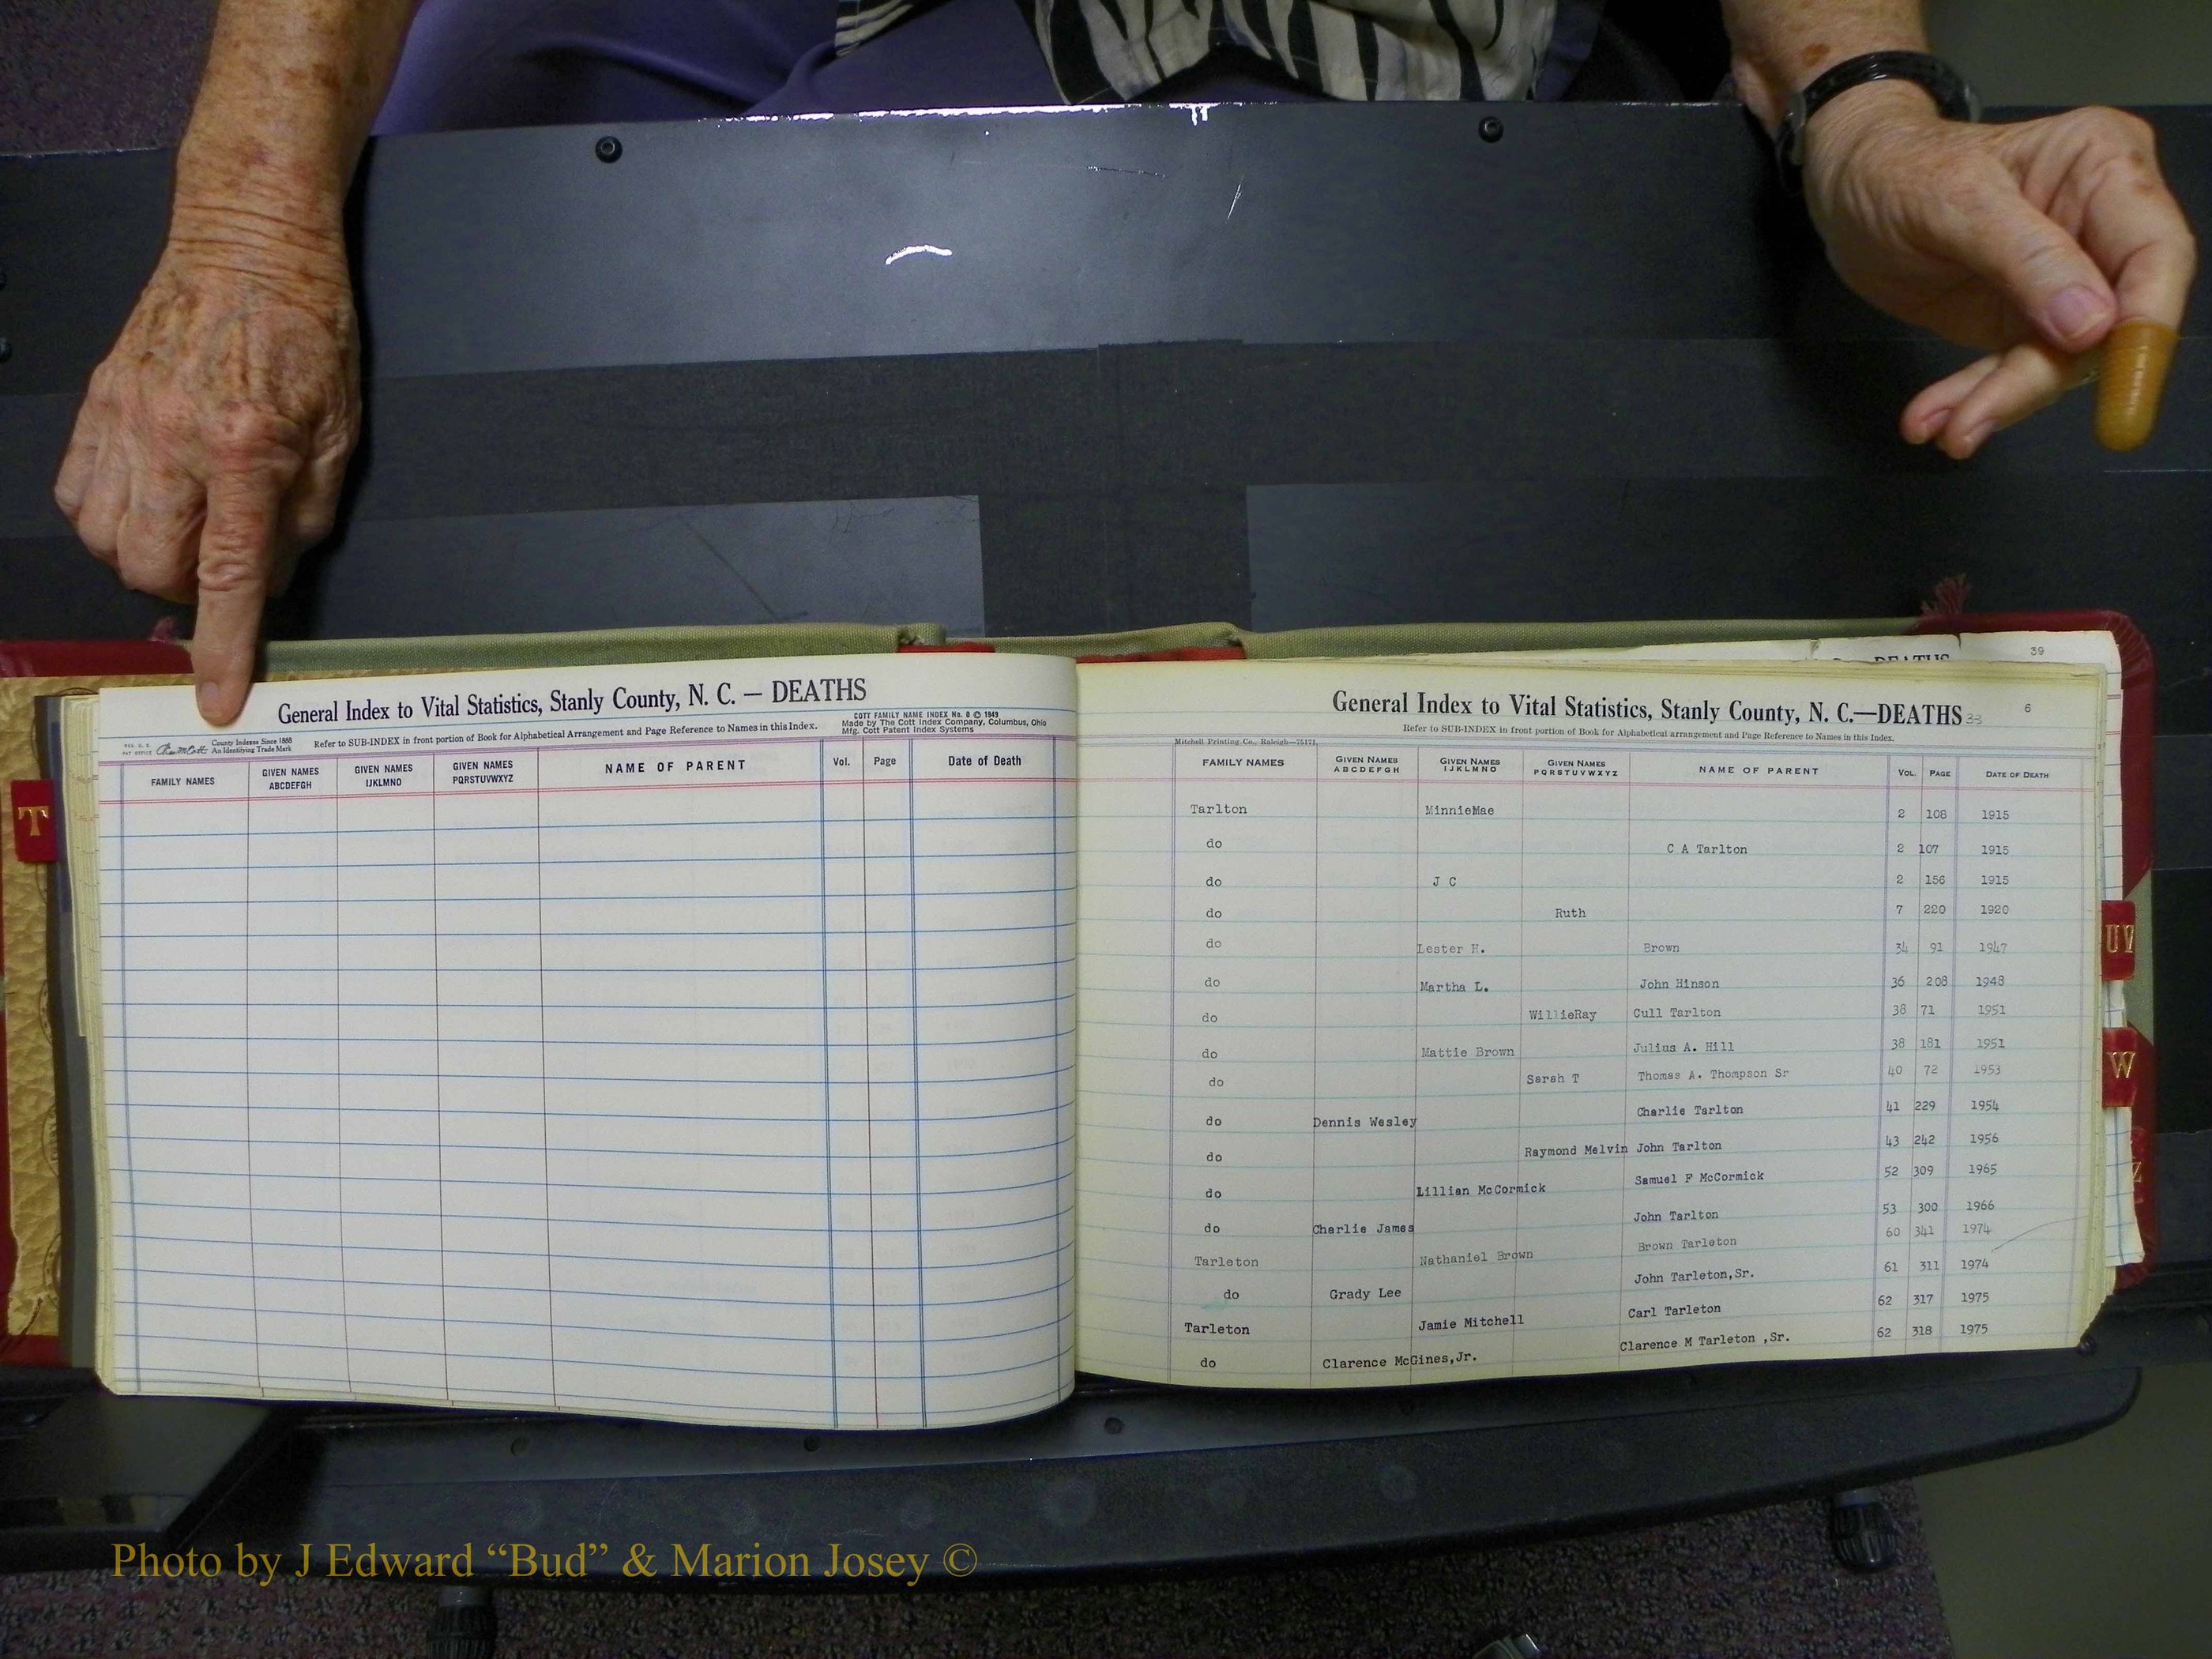 General Index to Vital Statistics, Stanly County, N. C. — DEATHS
Refer to SUB-INDEX in front portion of Book for Alphabetical Arrangement and Page Reference to Names in this Index.
COTT FAMILY NAME INDEX No. 0 © 1949
Made by The Cott Index Company, Columbus, Ohio
Mfg. Cott Patent Index Systems
County Indexes Since 1888
An Identifying Trade Mark
FAMILY NAMES GIVEN NAMES ABCDEFGH GIVEN NAMES IJKLMNO GIVEN NAMES PQRSTUVWXYZ NAME OF PARENT Vol. Page Date of Death
T
DEATHS
39
General Index to Vital Statistics, Stanly County, N. C.—DEATHS 33 6
Refer to SUB-INDEX in front portion of Book for Alphabetical arrangement and Page Reference to Names in this Index.
Mitchell Printing Co., Raleigh—75171
FAMILY NAMES GIVEN NAMES ABCDEFGH GIVEN NAMES IJKLMNO GIVEN NAMES PQRSTUVWXYZ NAME OF PARENT VOL. PAGE DATE OF DEATH
Tarlton MinnieMae 2 108 1915
do C A Tarlton 2 107 1915
do J C 2 156 1915
do Ruth 7 220 1920
do Lester H. Brown 34 91 1947
do Martha L. John Hinson 36 208 1948
do WillieRay Cull Tarlton 38 71 1951
do Mattie Brown Julius A. Hill 38 181 1951
do Sarah T Thomas A. Thompson Sr 40 72 1953
do Dennis Wesley Charlie Tarlton 41 229 1954
do Raymond Melvin John Tarlton 43 242 1956
do Lillian McCormick Samuel F McCormick 52 309 1965
do Charlie James John Tarlton 53 300 1966
Tarleton Nathaniel Brown Brown Tarleton 60 341 1974
do Grady Lee John Tarleton,Sr. 61 311 1974
Tarleton Jamie Mitchell Carl Tarleton 62 317 1975
do Clarence McGines,Jr. Clarence M Tarleton ,Sr. 62 318 1975
UV
W
Z
Photo by J Edward “Bud” & Marion Josey ©